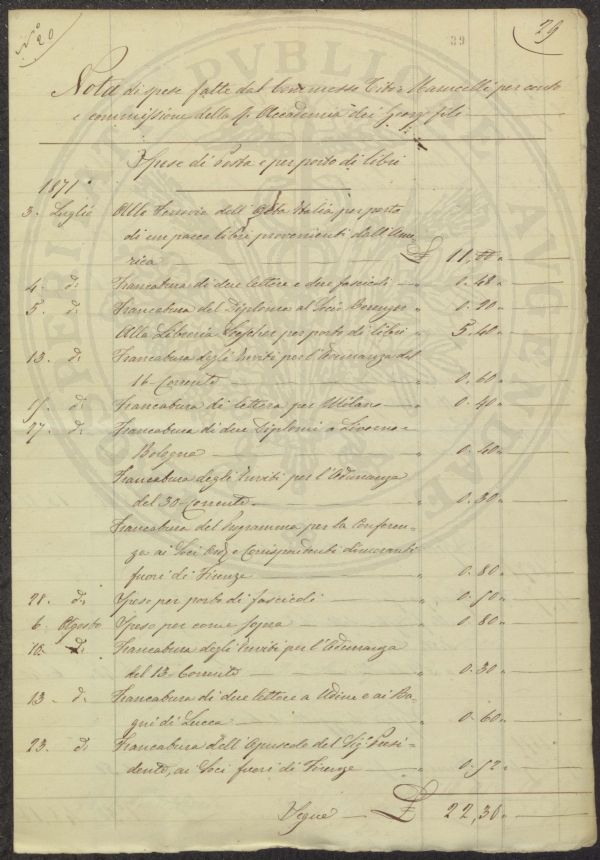 N.º 20
39
29
Nota di spese fatte dal Commesso per conto
e commissione della R. Accademia dei Georgofili
Spese di Posta e per porto di libri
1871.
3. Luglio Alla Ferrovia dell'Alta Italia per porto
di un pacco libri provenienti dall'Ame-
rica £ 11,00
4. d.º Francatura di due lettere e due fascicoli " 0.48
5. d.º Francatura del Diploma al Socio " 0.20
Alla Libreria Loescher per porto di libri " 5.40
13. d.º Francatura degli Inviti per l'Adunanza del
16 Corrente " 0.60
d.º Francatura di lettera per Milano " 0.40
27. d.º Francatura di due Diplomi a Livorno e
Bologna " 0.40
Francatura degli Inviti per l'Adunanza
del 30 Corrente " 0.30
Francatura del Programma per la Conferen-
za ai Soci Ord. e Corrispondenti dimoranti
fuori di Firenze " 0.80
28. d.º Spese per porto di fascicoli " 0.50
6. Agosto Spese per come sopra " 0.80
10. d.º Francatura degli Inviti per l'Adunanza
del 13 Corrente " 0.30
13 d.º Francatura di due lettere a Udine e ai Ba-
gni di Lucca " 0.60
23. d.º Francatura dell'Opuscolo del Sig.r Presi-
dente, ai Soci fuori di Firenze " 0.52
Segue £ 22,30